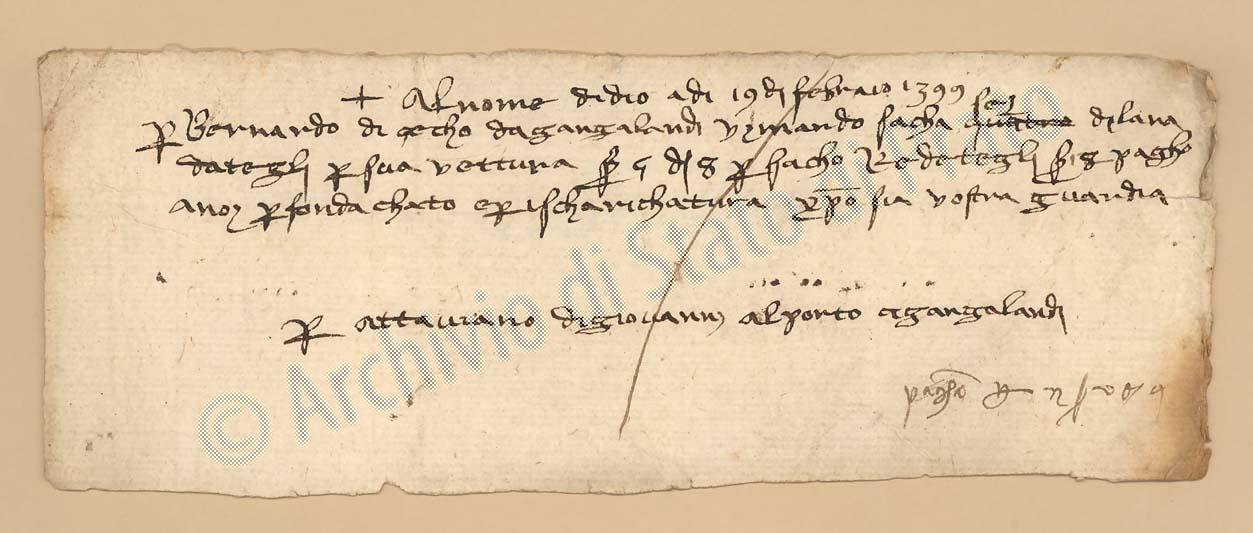 + Al nome di dio adi 19 di febraio 1399
P Bernardo di cecho dagangalandi vi mando sacha sei quattro di lana
dategli p sua vettura s 5 d 8 p sacho Redetegli s 8 pagho
anoi p fonda chato e p ischarichatura xpo sia vostra guardia
P attaviano di giovanni al porto a gangalandi
paghato
© Archivio di Stato di Prato